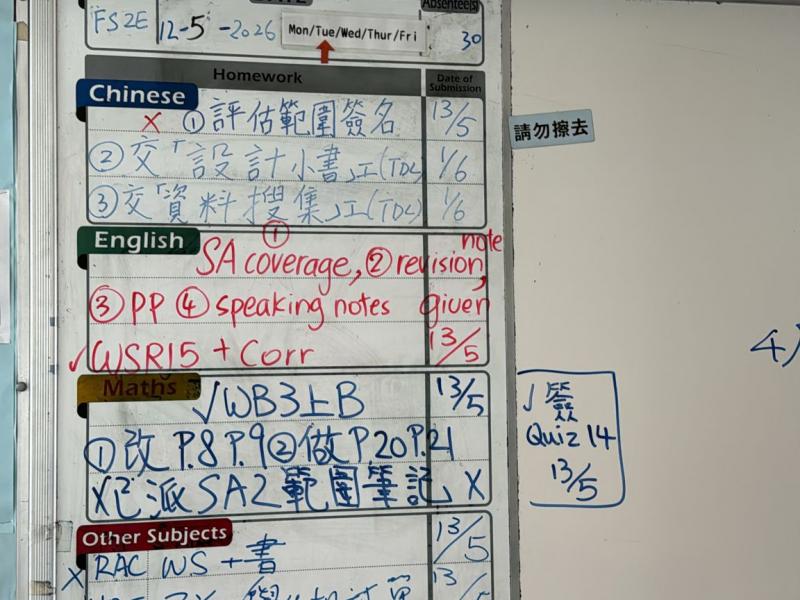 Absentee(s)
FS2E 12-5-2026 Mon/Tue/Wed/Thur/Fri 30
Homework Date of Submission
Chinese
x ①評估範圍簽名 13/5
②交「設計小書」工(TDL) 1/6
③交「資料搜集」工(TDL) 1/6
English
① SA coverage, ② revision note,
③ PP ④ speaking notes given
✓WSR15 + Corr 13/5
Maths
✓WB3上B 13/5
①改 P.8 P.9 ②做 P.20 P.21
X已派SA2範圍筆記 X
Other Subjects
X RAC WS + 書 13/5
請勿擦去
✓簽
Quiz 14
13/5